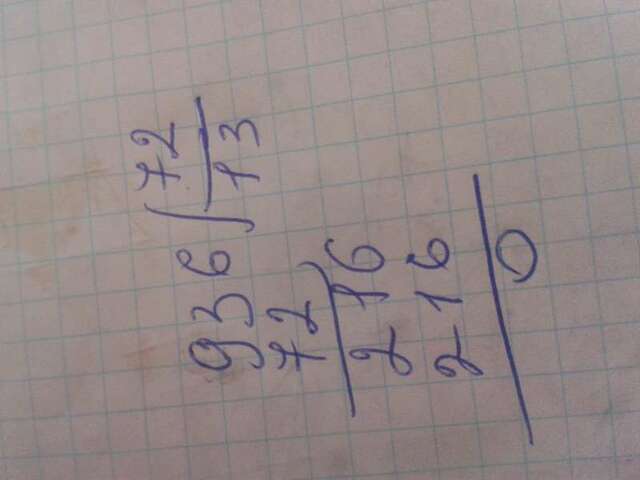 936 72
72 13
216
216
0